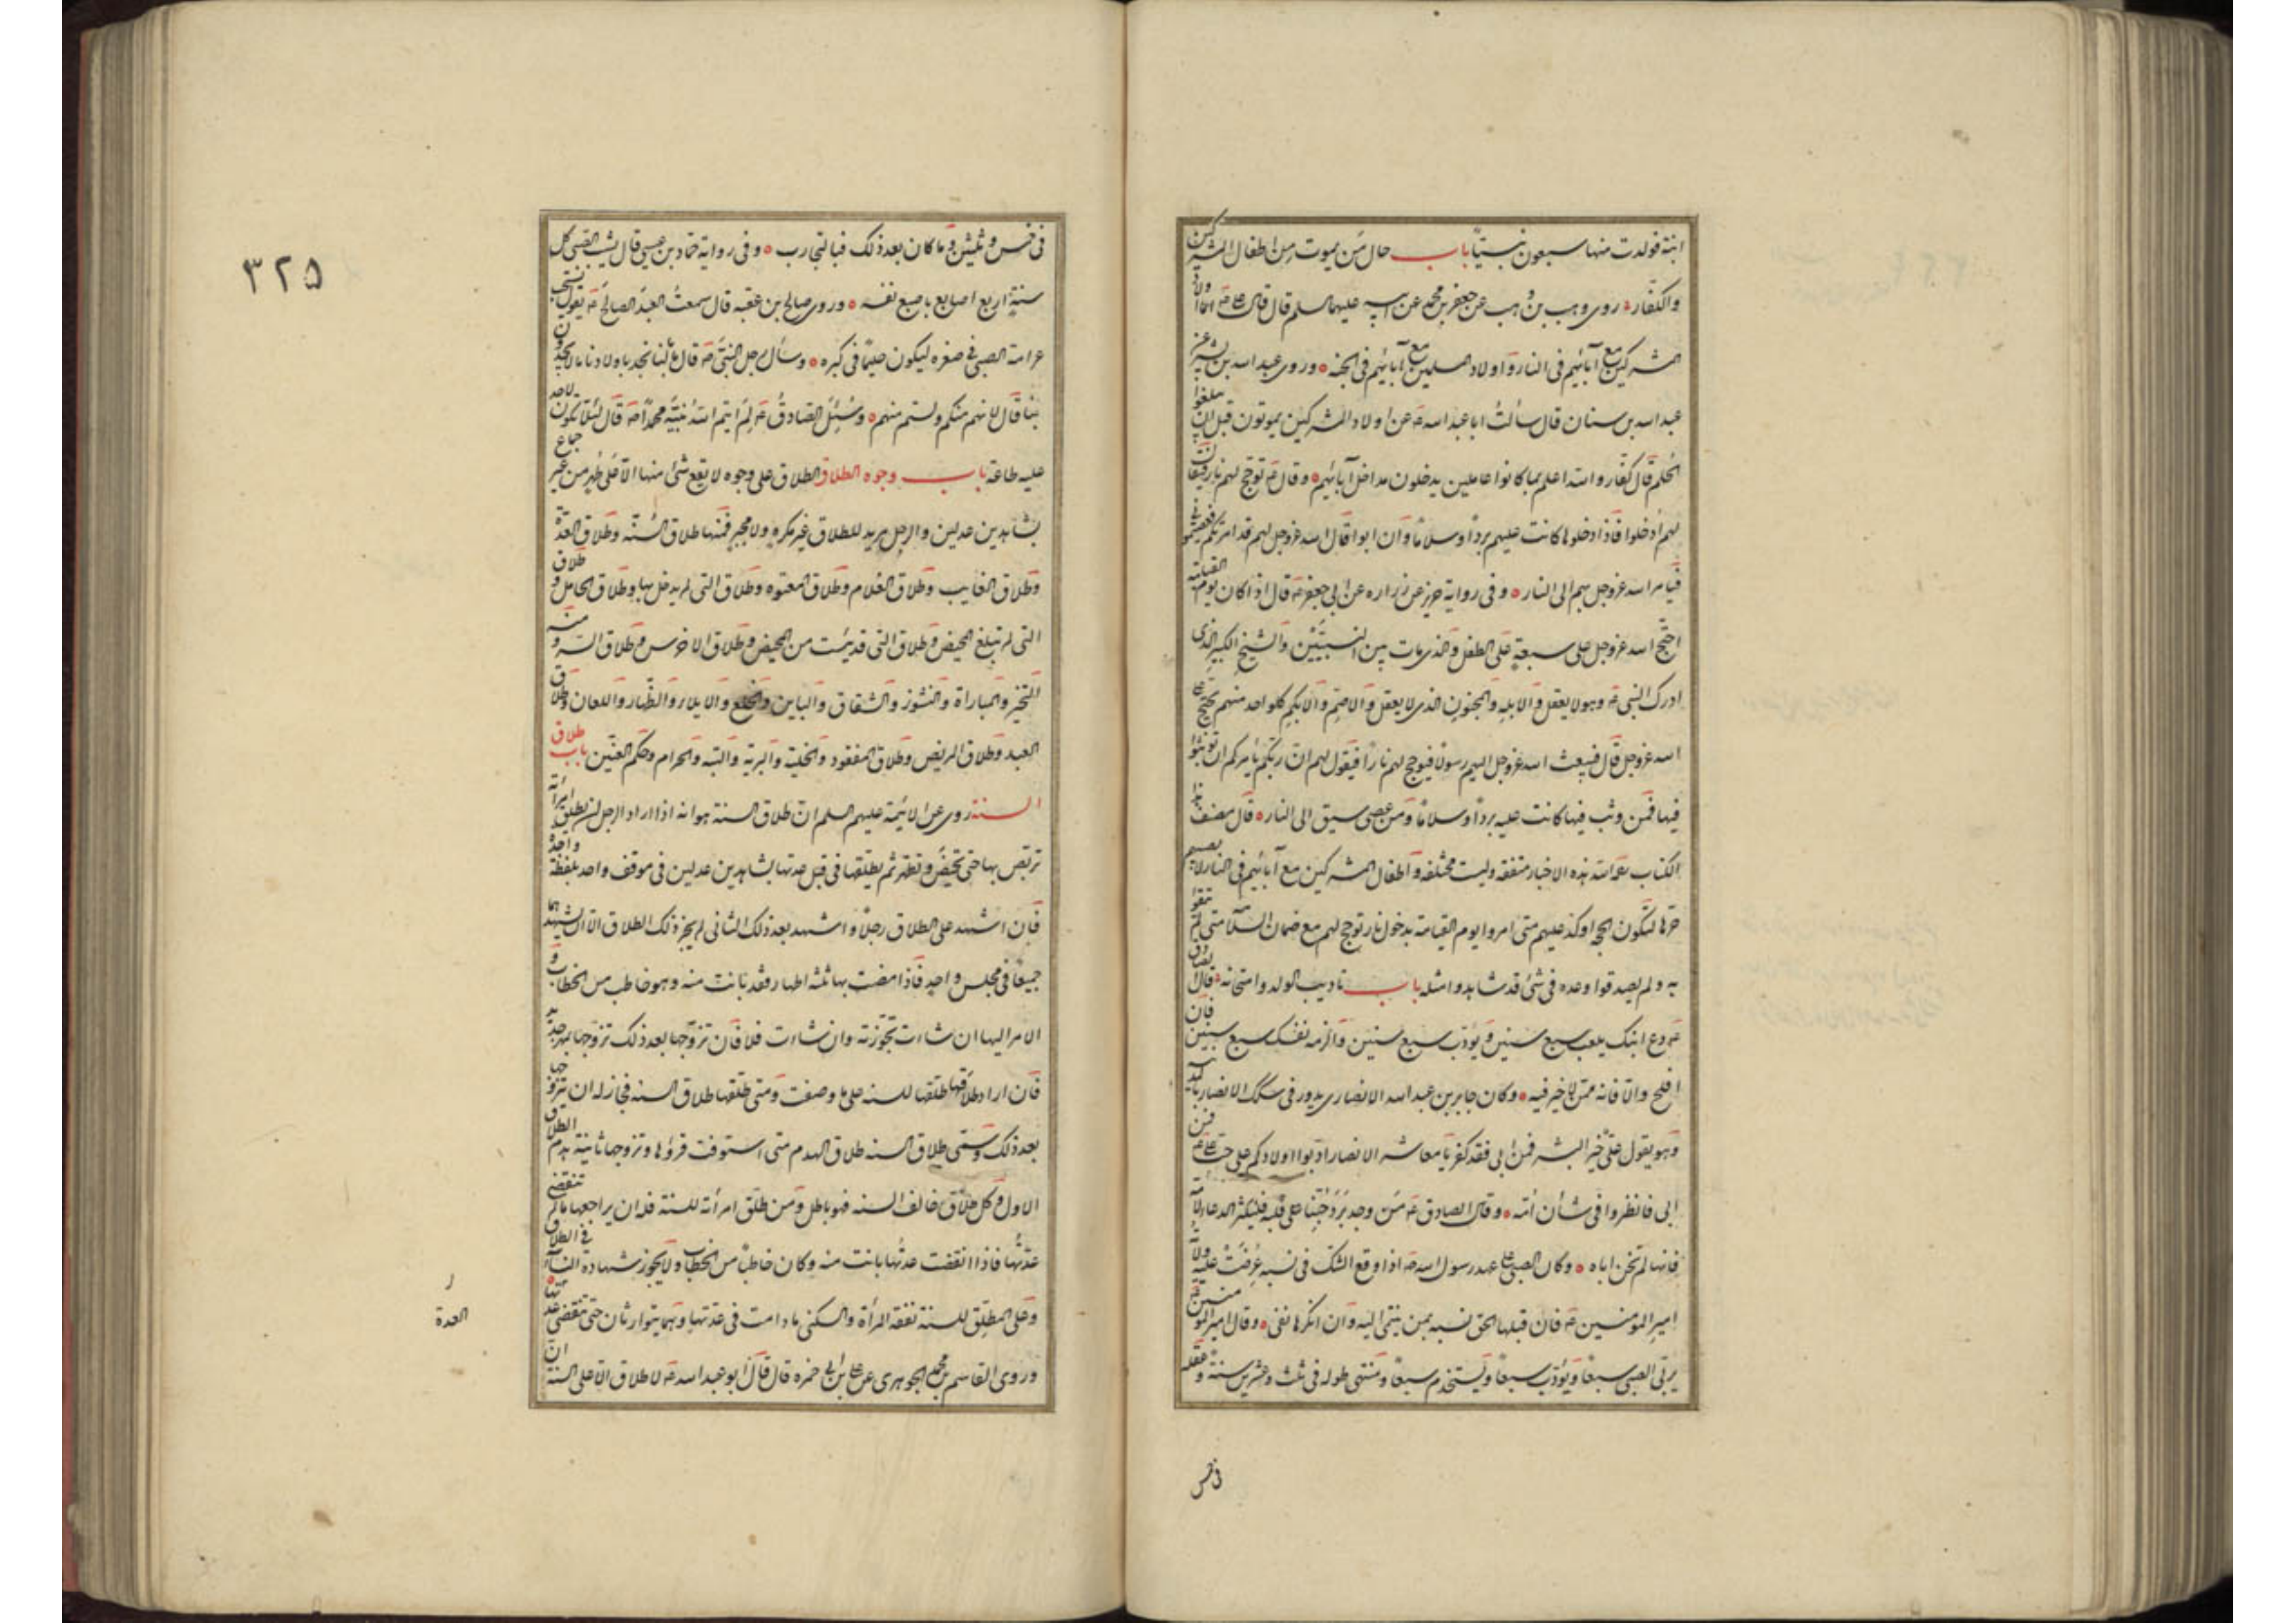 ابنة فولدت منها سبعون نبيّاً باب حال من يموت من اطفال المشركين
والكفّار روى وهب بن وهب عن جعفر بن محمد عن ابيه عليهما السلم قال قال على ع اولاد
المشركين مع آبائهم فى النار واولاد المسلمين مع آبائهم فى الجنه وروى جعفر بن بشير عن
عبد الله بن سنان قال سألت ابا عبد الله ع عن اولاد المشركين يموتون قبل ان يبلغوا
الحلم قال كفّار والله اعلم بما كانوا عاملين يدخلون مداخل آبائهم وقال ع توجّج لهم نار فيقال
لهم ادخلوا فاذا دخلوها كانت عليهم برداً وسلاماً وان ابوا قال الله عز وجل لهم قد امرتكم فعصيتمونى
فيامر الله عز وجل بهم الى النار وفى رواية حريز عن زراره عن ابى جعفر ع قال اذا كان يوم القيامة
احتج الله عز وجل على سبعةٍ على الطفل والذى مات بين النبيّين والشيخ الكبير الذى
ادرك النبى ص وهو لا يعقل والابله والمجنون الذى لا يعقل والاصمّ والابكم كل واحد منهم يحتج على
الله عز وجل قال فيبعث الله عز وجل اليهم رسولاً فيوجج لهم ناراً فيقول لهم ان ربّكم يأمركم ان تثبوا
فيها فمن وثب فيها كانت عليه برداً وسلاماً ومن عصى سيق الى النار قال مصنف هذا
الكتاب رحمه الله هذه الاخبار متفقه وليست مختلفه واطفال المشركين مع آبائهم فى النار لا يصيبهم
حرّها لتكون الحجه اوكد عليهم متى امروا يوم القيامة بدخول نار توجج لهم مع ضمان السلامة متى لم يثقوا
به ولم يصدقوا وعده فى شئ قد شاهدوا مثله باب تاديب الولد وامتحانه قال الصادق
ع دع ابنك يلعب سبع سنين ويؤدّب سبع سنين والزمه نفسك سبع سنين فان
افلح والّا فانه ممّن لا خير فيه وكان جابر بن عبد الله الانصارى يدور فى سكك الانصار بالمدينة
وهو يقول علىّ خير البشر فمن ابى فقد كفر يا معاشر الانصار ادّبوا اولادكم على حب على ع فمن
ابى فانظروا فى شأن امّه وقال الصادق ع من وجد بَرَد حُبّنا على قلبه فليكثر الدعاء لامّه
فانها لم تخن اباه وكان الصبى على عهد رسول الله ص اذا وقع الشك فى نسبه عُرضت عليه ولاية
امير المؤمنين ع فان قبلها الحق نسبه بمن ينتمى اليه وان انكرها نفى وقال امير المؤمنين ع
يربّى الصبى سبعاً ويؤدّب سبعاً ويستخدم سبعاً ومنتهى طوله فى ثلث وعشرين سنة وعقله
فى خمس
٣٢٥
فى خمس وثلثين وما كان بعد ذلك فبالتجارب وفى رواية حمّاد بن عيسى قال يشب الصبى كل
سنةٍ اربع اصابع باصبع نفسه وروى صالح بن عقبه قال سمعت العبد الصالح ع يقول يستحب
عرامة الصبى فى صغره ليكون حليماً فى كبره وسأل رجل النبى ص قال ما لنا نجد باولادنا ما لا يجدون
بنا قال لانهم منكم ولستم منهم وسُئل الصادق ع لِمَ ايتم الله نبيّه محمداً ص قال لئلا تكون لاحد
عليه طاعة باب وجوه الطلاق الطلاق على وجوه لا يقع شئ منها الّا على طهر من غير جماع
بشاهدين عدلين والرجل مريد للطلاق غير مكرهٍ ولا مجبرٍ فمنها طلاق السنّه وطلاق العدّة
وطلاق الغايب وطلاق الغلام وطلاق المعتوه وطلاق التى لم يدخل بها وطلاق الحامل وطلاق
التى لم تبلغ المحيض وطلاق التى قد يئست من المحيض وطلاق الاخرس وطلاق السر ومنه
التخيير والمباراة والنشوز والشقاق والباين والخلع والايلاء والظهار واللعان وطلاق
العبد وطلاق المريض وطلاق المفقود والخلية والبرية والبته والحرام وحكم العنّين باب طلاق
السنة روى عن الائمة عليهم السلم ان طلاق السنة هو انه اذا اراد الرجل ان يطلق امرأته
تربّص بها حتى تحيض وتطهر ثم يطلّقها فى قبل عدتها بشاهدين عدلين فى موقف واحد بلفظة واحدة
فان اشهد على الطلاق رجلاً واشهد بعد ذلك الثانى لم يجز ذلك الطلاق الّا ان يشهدهما
جميعاً فى مجلس واحدٍ فاذا مضت بها ثلثه اطهار فقد بانت منه وهو خاطب من الخطاب و
الامر اليها ان شاءت تجوّزته وان شاءت فلا فان تزوّجها بعد ذلك تزوّجها بمهر جديد
فان اراد طلاقها طلقها للسنه على ما وصفت ومتى طلّقها طلاق السنه فجايز له ان يتزوجها
بعد ذلك وسمّى طلاق السنه طلاق الهدم متى استوفت قروءها وتزوجها ثانية هدم الطلاق
الاول وكل طلاق خالف السنه فهو باطل ومن طلّق امرأته للسنة فله ان يراجعها ما لم تنقض
عدّتها فاذا انقضت عدتها بانت منه وكان خاطباً من الخطاب ولا يجوز شهادة النساء فى الطلاق
وعلى المطلّق للسنة نفقة المرأة والسكنى ما دامت فى عدّتها وهما يتوارثان حتى تنقضى عدّتها
وروى القاسم بن محمد الجوهرى عن على بن ابى حمزه قال قال ابو عبد الله ع لا طلاق الّا على السنة ان
العدة